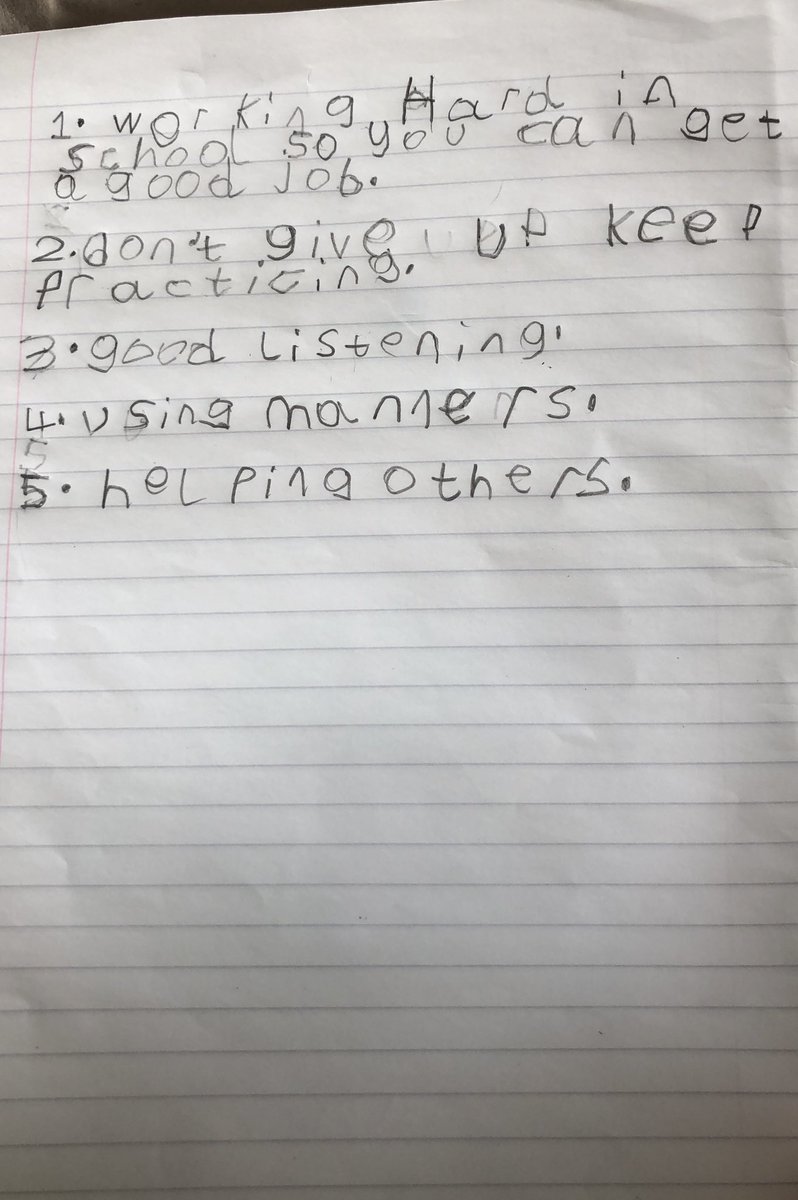 1. working Hard in
school so you can get
a good job.
2. don't give up keep
practicing.
3. good Listening.
4. using manners.
5. helping others.